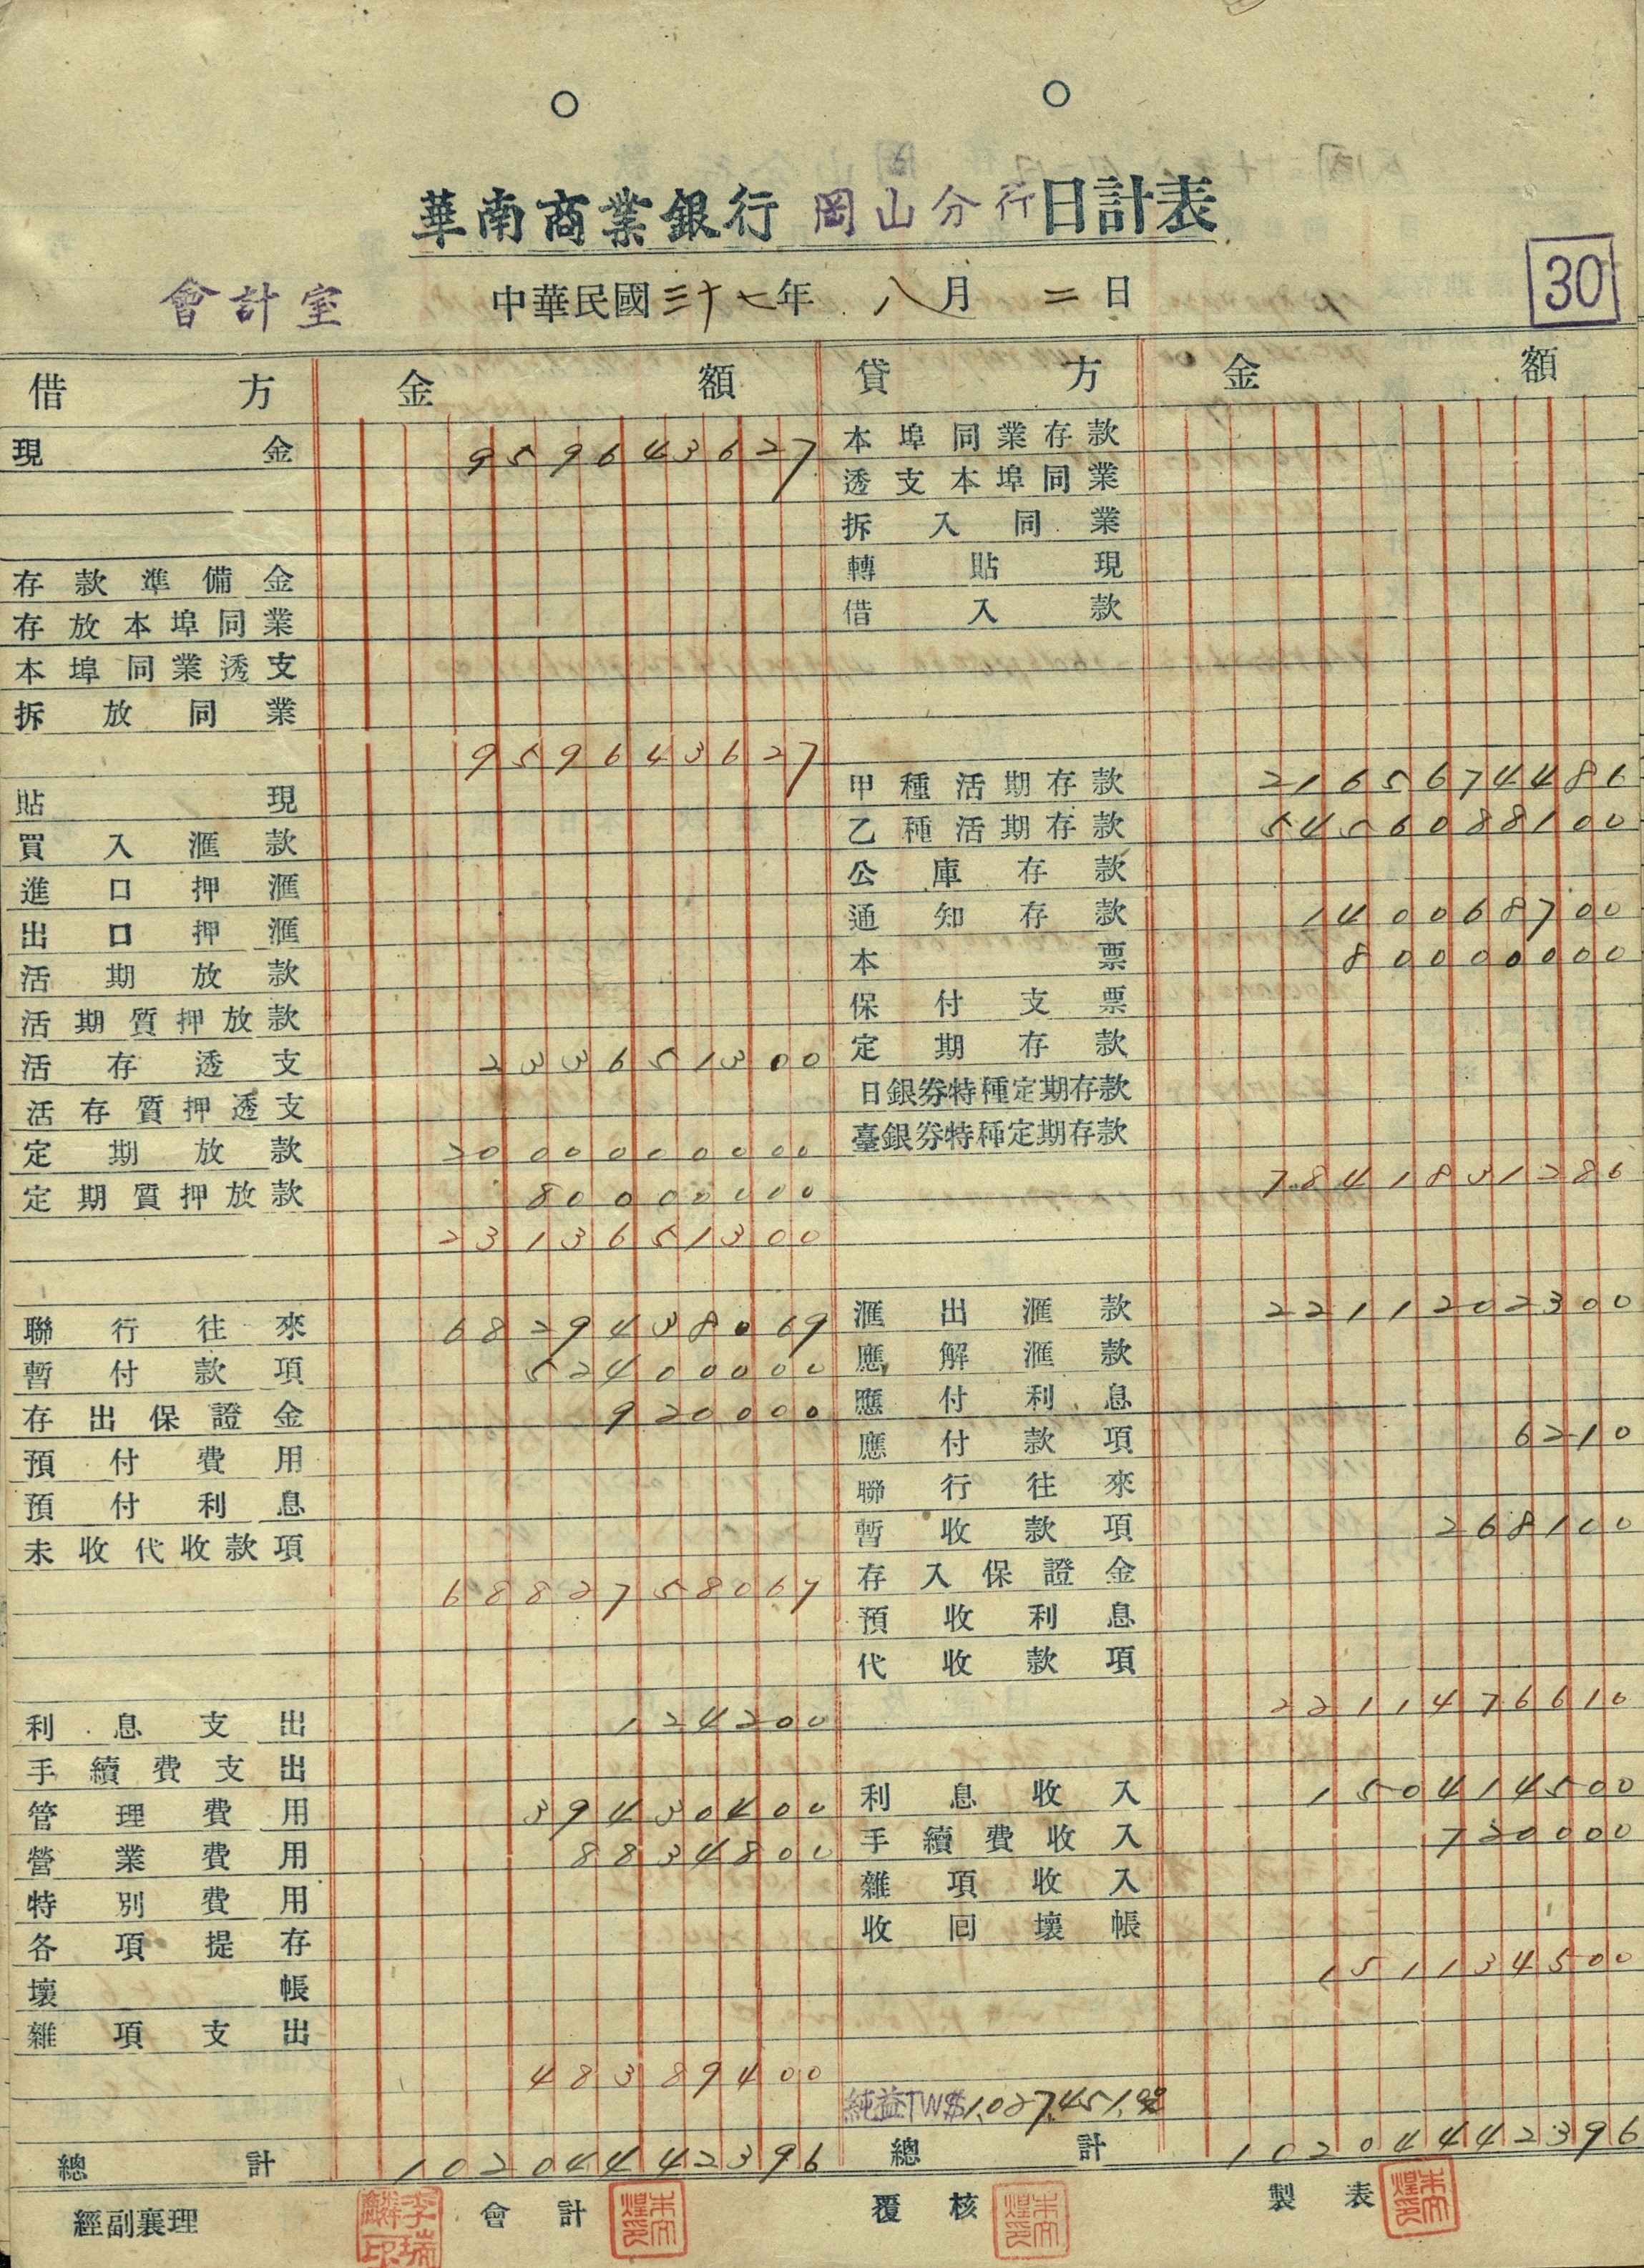 華南商業銀行 岡山分行 日計表
會計室
中華民國三十七年 八月 二日
30
借方 金額
現金 959643627
存款準備金
存放本埠同業
本埠同業透支
拆放同業
959643627
貼現
買入滙款
進口押滙
出口押滙
活期放款
活期質押放款
活存透支 233651300
活存質押透支
定期放款 2000000000
定期質押放款 80000000
2313651300
聯行往來 6829438069
暫付款項 52400000
存出保證金 920000
預付費用
預付利息
未收代收款項
6882758069
利息支出 124200
手續費支出
管理費用 39430400
營業費用 8834800
特別費用
各項提存
壞帳
雜項支出
48389400
總計 10204442396
貸方 金額
本埠同業存款
透支本埠同業
拆入同業
轉貼現
借入款
甲種活期存款 2165674486
乙種活期存款 5456088100
公庫存款
通知存款 140068700
本票 80000000
保付支票
定期存款
日銀券特種定期存款
臺銀券特種定期存款
7841831286
滙出滙款 2211202300
應解滙款
應付利息
應付款項 6210
聯行往來
暫收款項 268100
存入保證金
預收利息
代收款項
2211476610
利息收入 150414500
手續費收入 720000
雜項收入
收回壞帳
151134500
純益TW$1,027,451.00
總計 10204442396
經副襄理 李瑞麟印 會計 覆核 製表